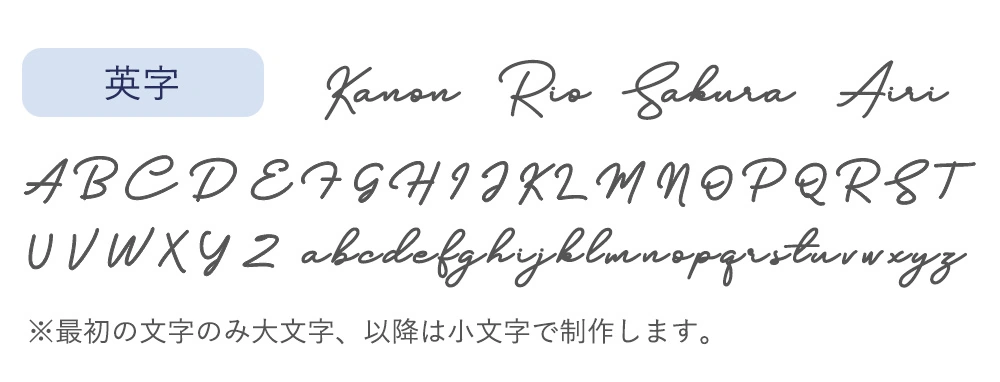 英字 Kanon Rio Sakura Airi
ABCDEFGHIJKLMNOPQRST
UVWXYZ abcdefghijklmnopqrstuvwxyz
※最初の文字のみ大文字、以降は小文字で制作します。